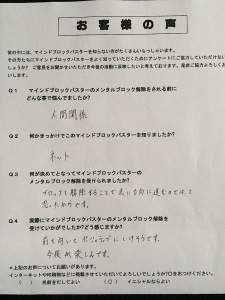 お客様の声
世の中には、マインドブロックバスターを知らない方がたくさんいらっしゃいます。
その方たちにマインドブロックバスターをよく知っていただくためにアンケートにご協力していただけないで
しょうか？ ご意見をお聞かせいただき今後の活動に反映したいと考えております。是非ご協力よろしくお願
いします。
Q1 マインドブロックバスターのメンタルブロック解除をされる前に
どんな事で悩んでましたか？
人間関係
Q2 何がきっかけでこのマインドブロックバスターを知りましたか？
ネット
Q3 何が決めてとなってマインドブロックバスターの
メンタルブロック解除を受けられましたか？
ブロックを解除することで良い方向に進むのではと
思ったからです。
Q4 実際にマインドブロックバスターのメンタルブロック解除を
受けていかがでしたか？どう感じますか？
前を向いてポジティブにいけそうです。
今後が楽しみです。
*上記のお声についてお願いがあります。
インターネットや印刷物などに掲載させていただいてよろしいでしょうか？○をおつけください。
（ ）名前をだしてよい （○）イニシャルならよい